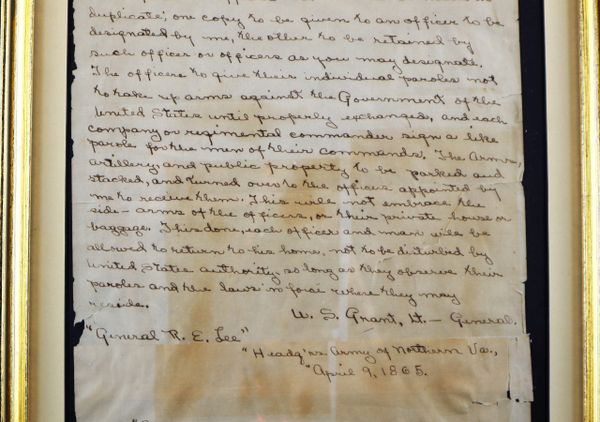 duplicate; one copy to be given to an officer to be
designated by me, the other to be retained by
such officer or officers as you may designate.
The officers to give their individual paroles not
to take up arms against the Government of the
United States until properly exchanged, and each
company or regimental commander sign a like
parole for the men of their commands. The Arms,
artillery and public property to be parked and
stacked, and turned over to the officer appointed by
me to receive them. This will not embrace the
side-arms of the officers, or their private horses or
baggage. This done, each officer and man will be
allowed to return to his home, not to be disturbed by
United States authority, so long as they observe their
paroles and the laws in force where they may
reside.
U. S. Grant, Lt-General.
"General R. E. Lee"
"Headq'rs Army of Northern Va.,
"April 9, 1865.